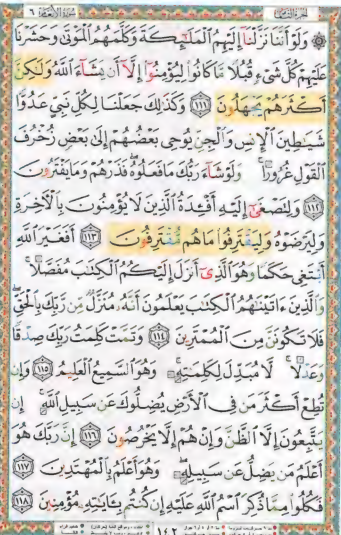 الجزء الثامن سورة الأنعام ٦
۞ وَلَوْ أَنَّنَا نَزَّلْنَا إِلَيْهِمُ الْمَلَٰٓئِكَةَ وَكَلَّمَهُمُ الْمَوْتَىٰ وَحَشَرْنَا
عَلَيْهِمْ كُلَّ شَىْءٍ قُبُلًا مَّا كَانُوا۟ لِيُؤْمِنُوٓا۟ إِلَّآ أَن يَشَآءَ اللَّهُ وَلَٰكِنَّ
أَكْثَرَهُمْ يَجْهَلُونَ ۝١١١ وَكَذَٰلِكَ جَعَلْنَا لِكُلِّ نَبِىٍّ عَدُوًّا
شَيَٰطِينَ الْإِنسِ وَالْجِنِّ يُوحِى بَعْضُهُمْ إِلَىٰ بَعْضٍ زُخْرُفَ
الْقَوْلِ غُرُورًا ۚ وَلَوْ شَآءَ رَبُّكَ مَا فَعَلُوهُ ۖ فَذَرْهُمْ وَمَا يَفْتَرُونَ
۝١١٢ وَلِتَصْغَىٰٓ إِلَيْهِ أَفْـِٔدَةُ الَّذِينَ لَا يُؤْمِنُونَ بِالْـَٔاخِرَةِ
وَلِيَرْضَوْهُ وَلِيَقْتَرِفُوا۟ مَا هُم مُّقْتَرِفُونَ ۝١١٣ أَفَغَيْرَ اللَّهِ
أَبْتَغِى حَكَمًا وَهُوَ الَّذِىٓ أَنزَلَ إِلَيْكُمُ الْكِتَٰبَ مُفَصَّلًا ۚ
وَالَّذِينَ ءَاتَيْنَٰهُمُ الْكِتَٰبَ يَعْلَمُونَ أَنَّهُۥ مُنَزَّلٌ مِّن رَّبِّكَ بِالْحَقِّ ۖ
فَلَا تَكُونَنَّ مِنَ الْمُمْتَرِينَ ۝١١٤ وَتَمَّتْ كَلِمَتُ رَبِّكَ صِدْقًا
وَعَدْلًا ۚ لَّا مُبَدِّلَ لِكَلِمَٰتِهِۦ ۚ وَهُوَ السَّمِيعُ الْعَلِيمُ ۝١١٥ وَإِن
تُطِعْ أَكْثَرَ مَن فِى الْأَرْضِ يُضِلُّوكَ عَن سَبِيلِ اللَّهِ ۚ إِن
يَتَّبِعُونَ إِلَّا الظَّنَّ وَإِنْ هُمْ إِلَّا يَخْرُصُونَ ۝١١٦ إِنَّ رَبَّكَ هُوَ
أَعْلَمُ مَن يَضِلُّ عَن سَبِيلِهِۦ ۖ وَهُوَ أَعْلَمُ بِالْمُهْتَدِينَ ۝١١٧
فَكُلُوا۟ مِمَّا ذُكِرَ اسْمُ اللَّهِ عَلَيْهِ إِن كُنتُم بِـَٔايَٰتِهِۦ مُؤْمِنِينَ ۝١١٨
١٤٢